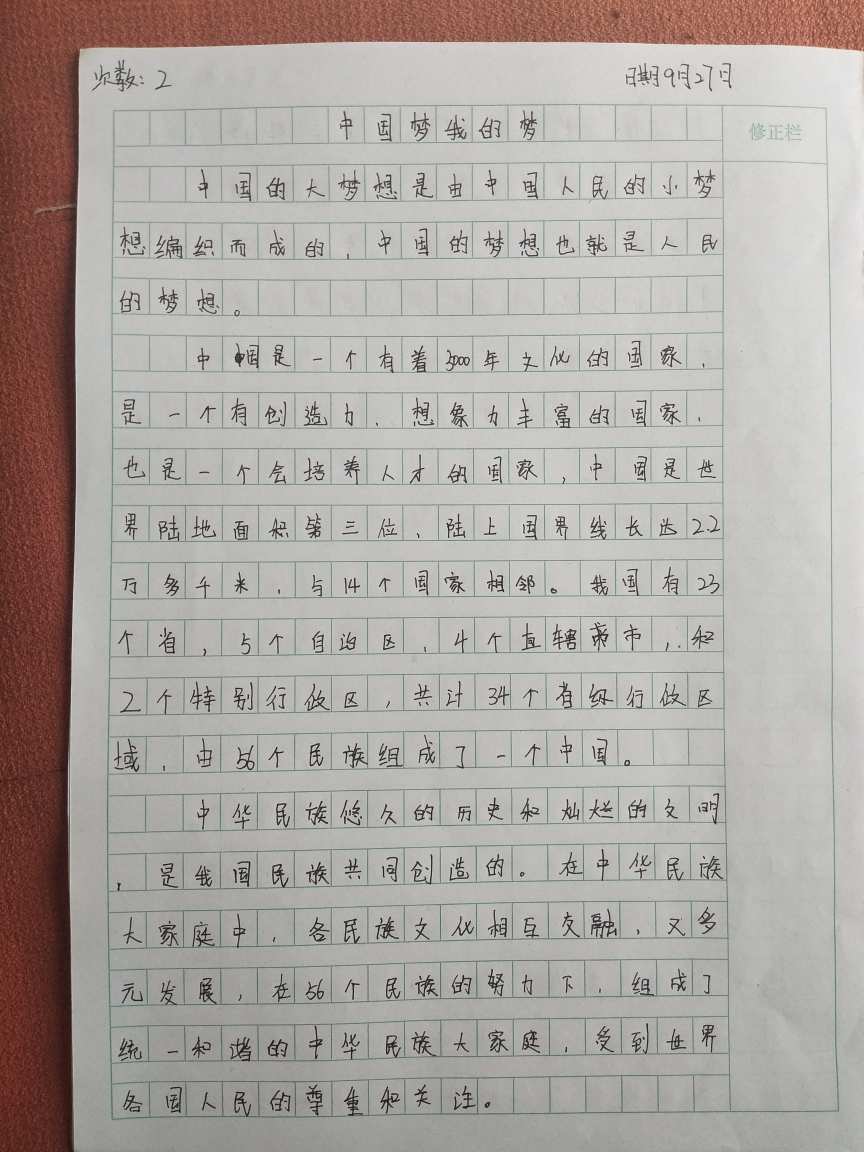 次数:2 日期9月27日
中国梦我的梦
修正栏
中国的大梦想是由中国人民的小梦
想编织而成的,中国的梦想也就是人民
的梦想。
中国是一个有着5000年文化的国家,
是一个有创造力、想象力丰富的国家,
也是一个会培养人才的国家,中国是世
界陆地面积第三位、陆上国界线长达2.2
万多千米,与14个国家相邻。我国有23
个省,5个自治区,4个直辖市,和
2个特别行政区,共计34个省级行政区
域,由56个民族组成了一个中国。
中华民族悠久的历史和灿烂的文明
,是我国民族共同创造的。在中华民族
大家庭中,各民族文化相互交融,又多
元发展,在56个民族的努力下,组成了
统一和谐的中华民族大家庭,受到世界
各国人民的尊重和关注。